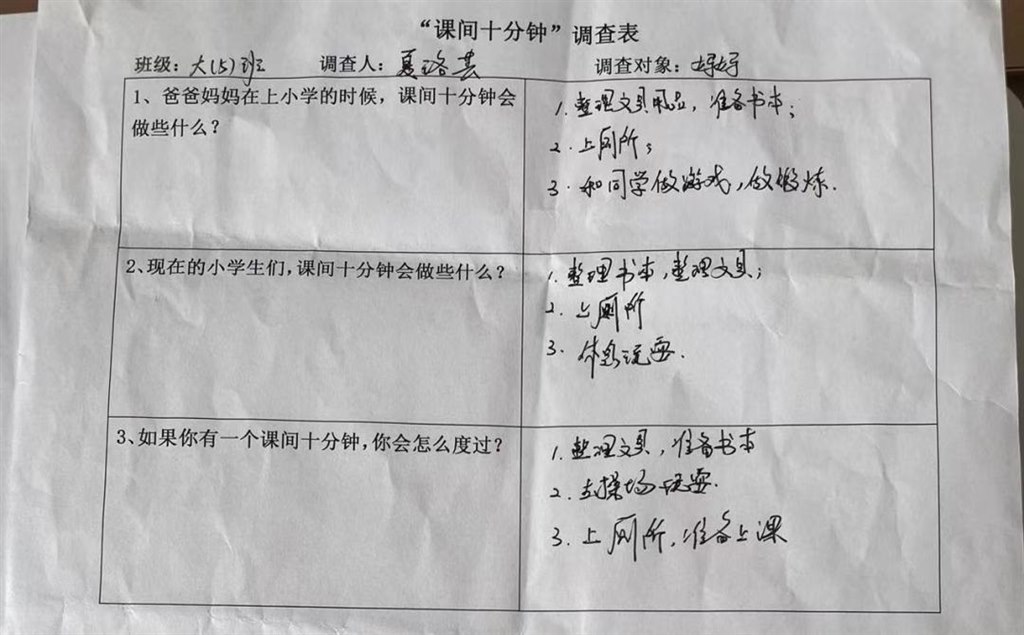 “课间十分钟”调查表
班级：大(5)班 调查人：夏珞芸 调查对象：
1、爸爸妈妈在上小学的时候，课间十分钟会
做些什么？
1.整理文具用品，准备书本；
2.上厕所；
3.和同学做游戏，做锻炼.
2、现在的小学生们，课间十分钟会做些什么？
1.整理书本，整理文具；
2.上厕所
3.休息玩耍.
3、如果你有一个课间十分钟，你会怎么度过？
1.整理文具，准备书本
2.去操场玩耍.
3.上厕所，准备上课